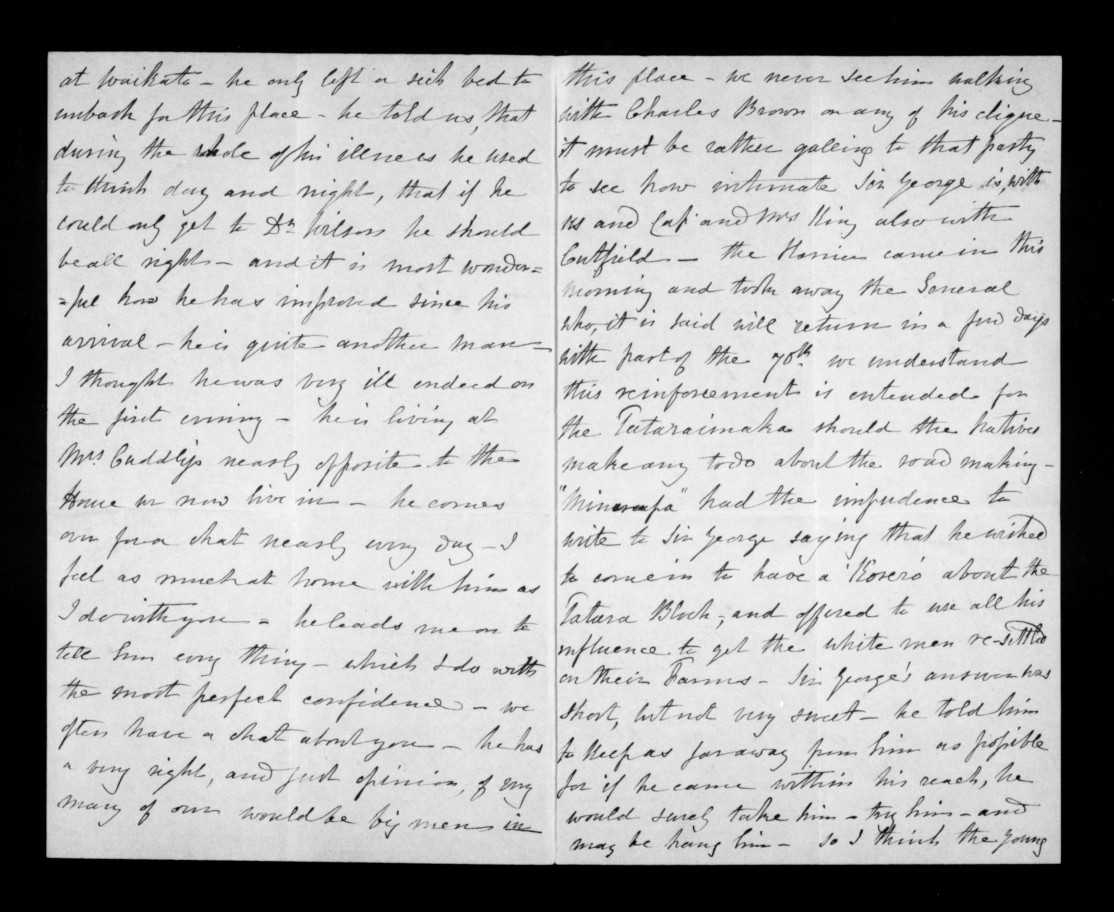 at Waikato - he only left a sick bed to
embark for this place - he told us, that
during the whole of his illness he used
to think day and night, that if he
could only get to Dr. Wilson he should
be all right - and it is most wonder=
=ful how he has improved since his
arrival - he is quite another man -
I thought he was very ill indeed on
the first evening - he is living at
Mrs. Cuddlip's nearly opposite to the
House we now live in - he comes
over for a chat nearly every day - I
feel as much at home with him as
I do with you - he leads me on to
tell him every thing - which I do with
the most perfect confidence - we
often have a chat about you - he has
a very right, and just opinion, of very
many of our would be big men in
this place - we never see him walking
with Charles Brown or any of his clique -
it must be rather galling to that party
to see how intimate Sir George is, with
us and Cap and Mrs King also with
Cutfield - the Harrier came in this
morning and took away the General
who, it is said will return in a few days
with part of the 70th. we understand
this reinforcement is entended for
the Tataraimaka should the Natives
make any todo about the road making -
" had the impudence to
write to Sir George saying that he wished
to come in to have a 'Korero' about the
Tatara Block, and offered to use all his
influence to get the white men re-settled
on their Farms - Sir George's answer was
short, but not very sweet - he told him
to keep as far away from him as possible
for if he came within his reach, he
would surely take him - try him - and
may be hang him - so I think the young